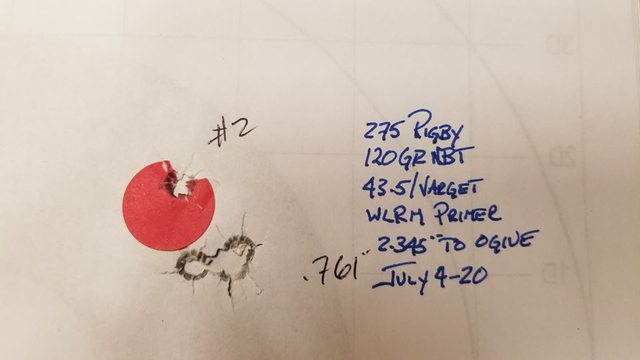 #2
275 RIGBY
120GR NBT
43.5/VARGET
WLRM PRIMER
2.345" TO OGIVE
.761"
JULY 4-20